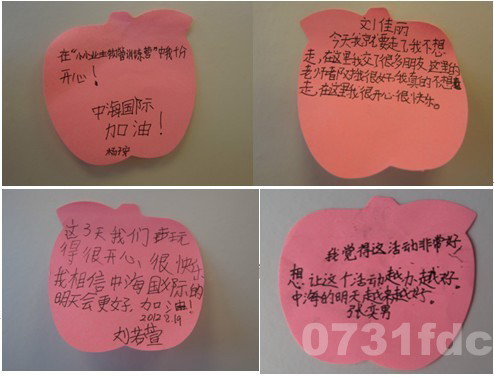 在"小小业主特训营"中我十分
开心！
中海国际
加油！
刘佳丽
今天我就要走了我不想
走，在这里我交了很多朋友，这里的
老师看队对我很好，我真的不想
走，在这里我很开心很快乐。
这3天我们
得很开心，很快乐
我相信中海国际的
明天会更好。加油！
2012.8.19
刘若萱
我觉得这活动非常好，
想让这个活动越办越好。
中海的明天越来越好。
张奕男
0731fdc